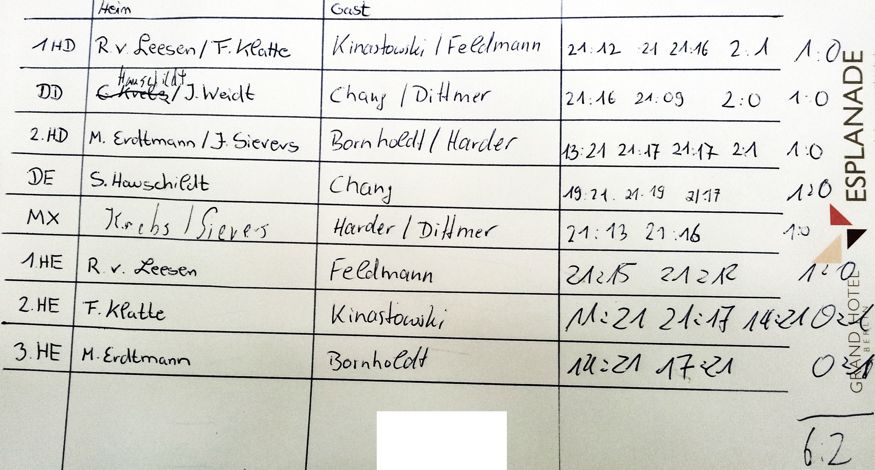 Heim Gast
1 HD R. v. Leesen / F. Klatte Kinastowski / Feldmann 21:12 21 21:16 2:1 1:0
Hauschildt
DD C. Krebs / J. Weidt Chang / Dittmer 21:16 21:09 2:0 1:0
2. HD M. Erdtmann / J. Sievers Bornholdt / Harder 13:21 21:17 21:17 2:1 1:0
DE S. Hauschildt Chang 19:21 21:19 21:17 1:0
MX Krebs / Sievers Harder / Dittmer 21:13 21:16 1:0
1. HE R. v. Leesen Feldmann 21:15 21:12 1:0
2. HE F. Klatte Kinastowski 11:21 21:17 14:21 0:1
3. HE M. Erdtmann Bornholdt 14:21 17:21 0:1
6:2
ESPLANADE
GRAND HOTEL
BERLIN